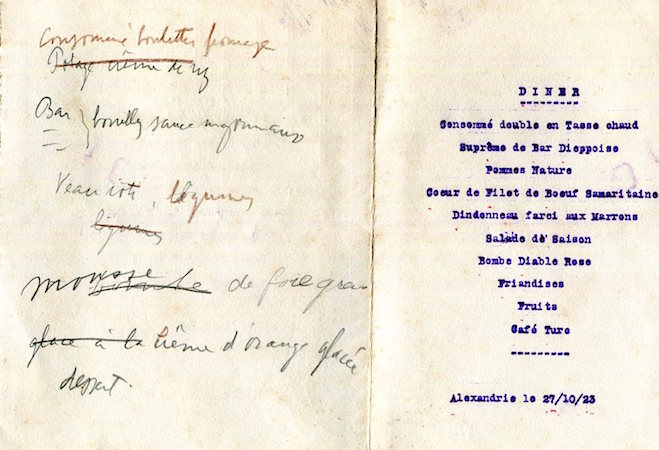 Consommé boulettes fromage
Potage crème de riz
Bar bouilli sauce mayonnaise
Veau rôti, légumes
légumes
mousse de foie gras
glace à la crème d'orange glacée
dessert.
DINER
---------
Consommé double en Tasse chaud
Suprême de Bar Dieppoise
Pommes Nature
Coeur de Filet de Boeuf Samaritaine
Dindonneau farci aux Marrons
Salade de Saison
Bombe Diable Rose
Friandises
Fruits
Café Turc
---------
Alexandrie le 27/10/23